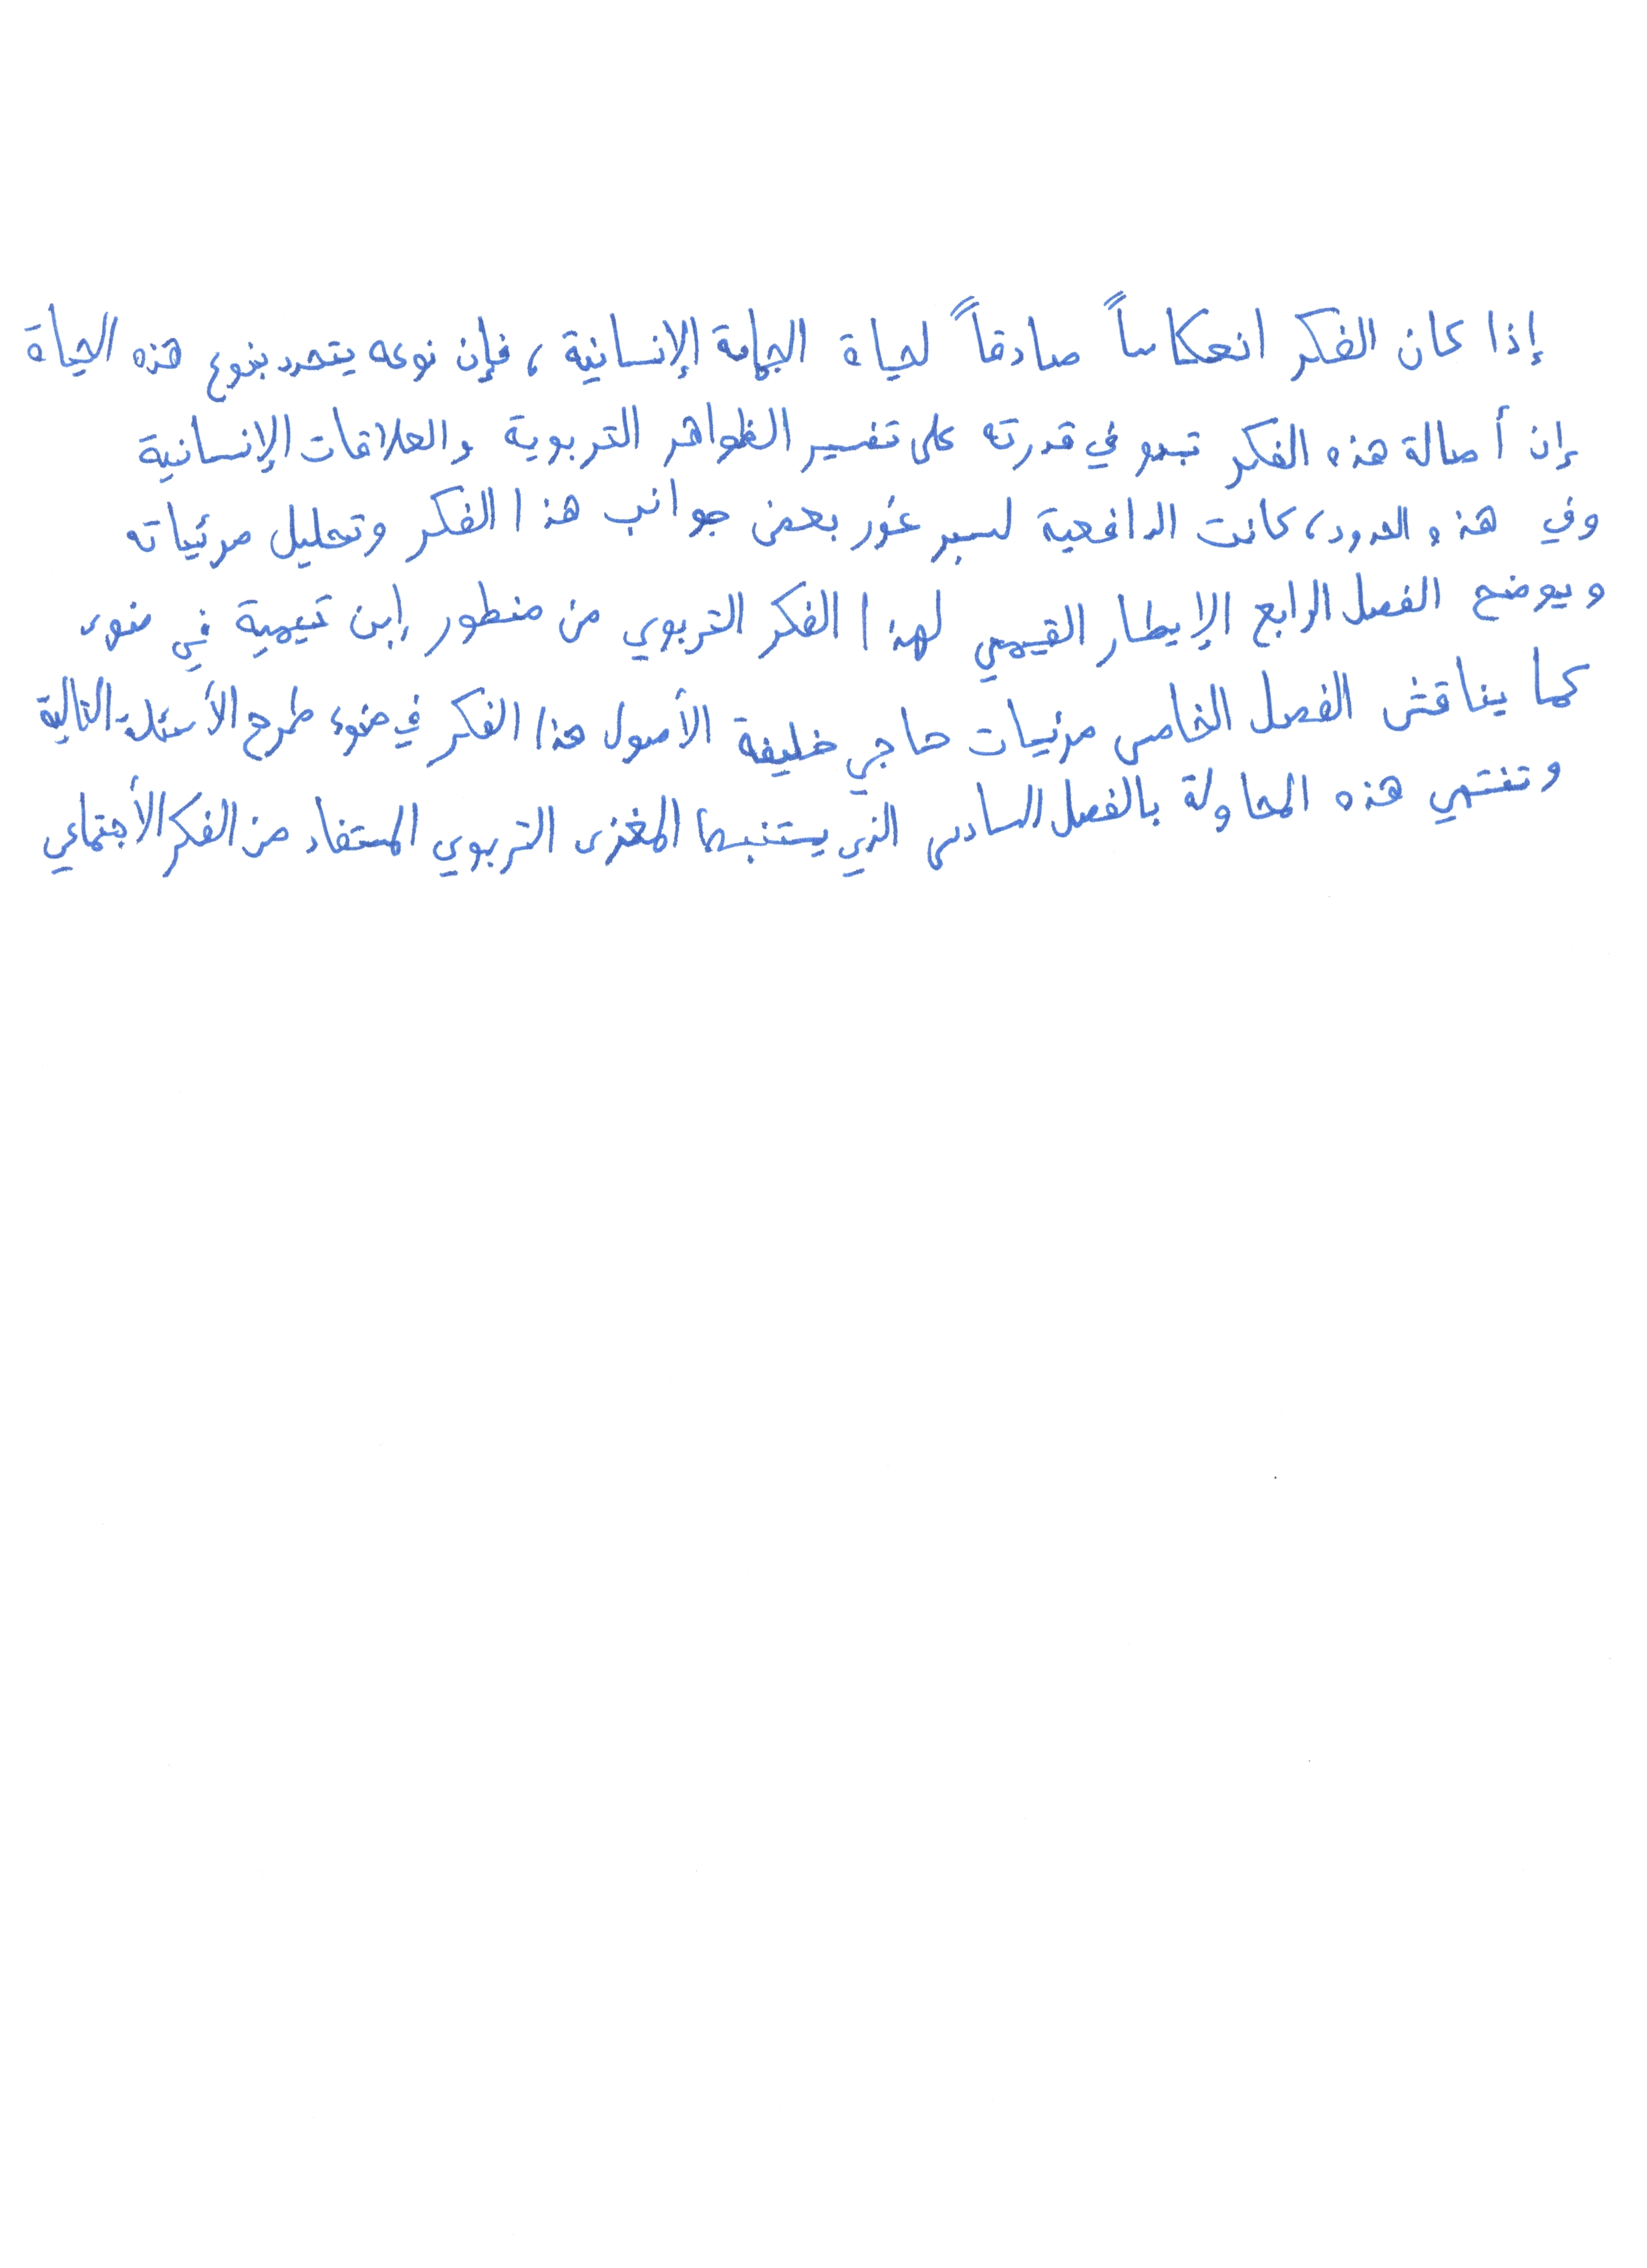 إذا كان الفكر انعكاساً صادقاً لحياة الجماعة الإنسانية ، فإن نوعه يتحدد بنوع هذه الحياة
إن أصالة هذه الفكر تبدو في قدرته على تفسير الظواهر التربوية والعلاقات الإنسانية
وفي هذه الحدود، كانت الدافعية لسبر غور بعض جوانب هذا الفكر وتحليل مرئياته
ويوضح الفصل الرابع الإيطار القيمي لهذا الفكر التربوي من منطور إبن تيمية في ضوء
كما يناقش الفصل الخامس مرئيات حاجي خليفة الأصول هذا الفكر في ضوء طرح الأسئلة التالية
وتنتهي هذه المحاولة بالفصل السادس الذي المغزى التربوي المستفاد من الفكر الأجتماعي